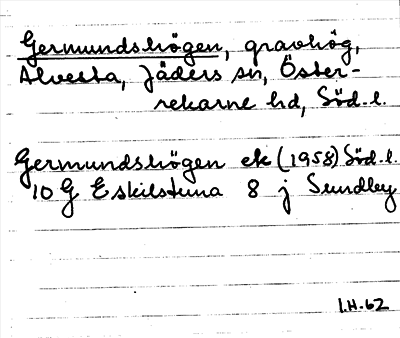 Germundshögen, gravhög,
Alvesta, Jäders sn, Öster-
rekarne hd, Söd. l.
Germundshögen ek (1958) Söd. l.
10 G Eskilstuna 8 j Sundby
I.H. 62